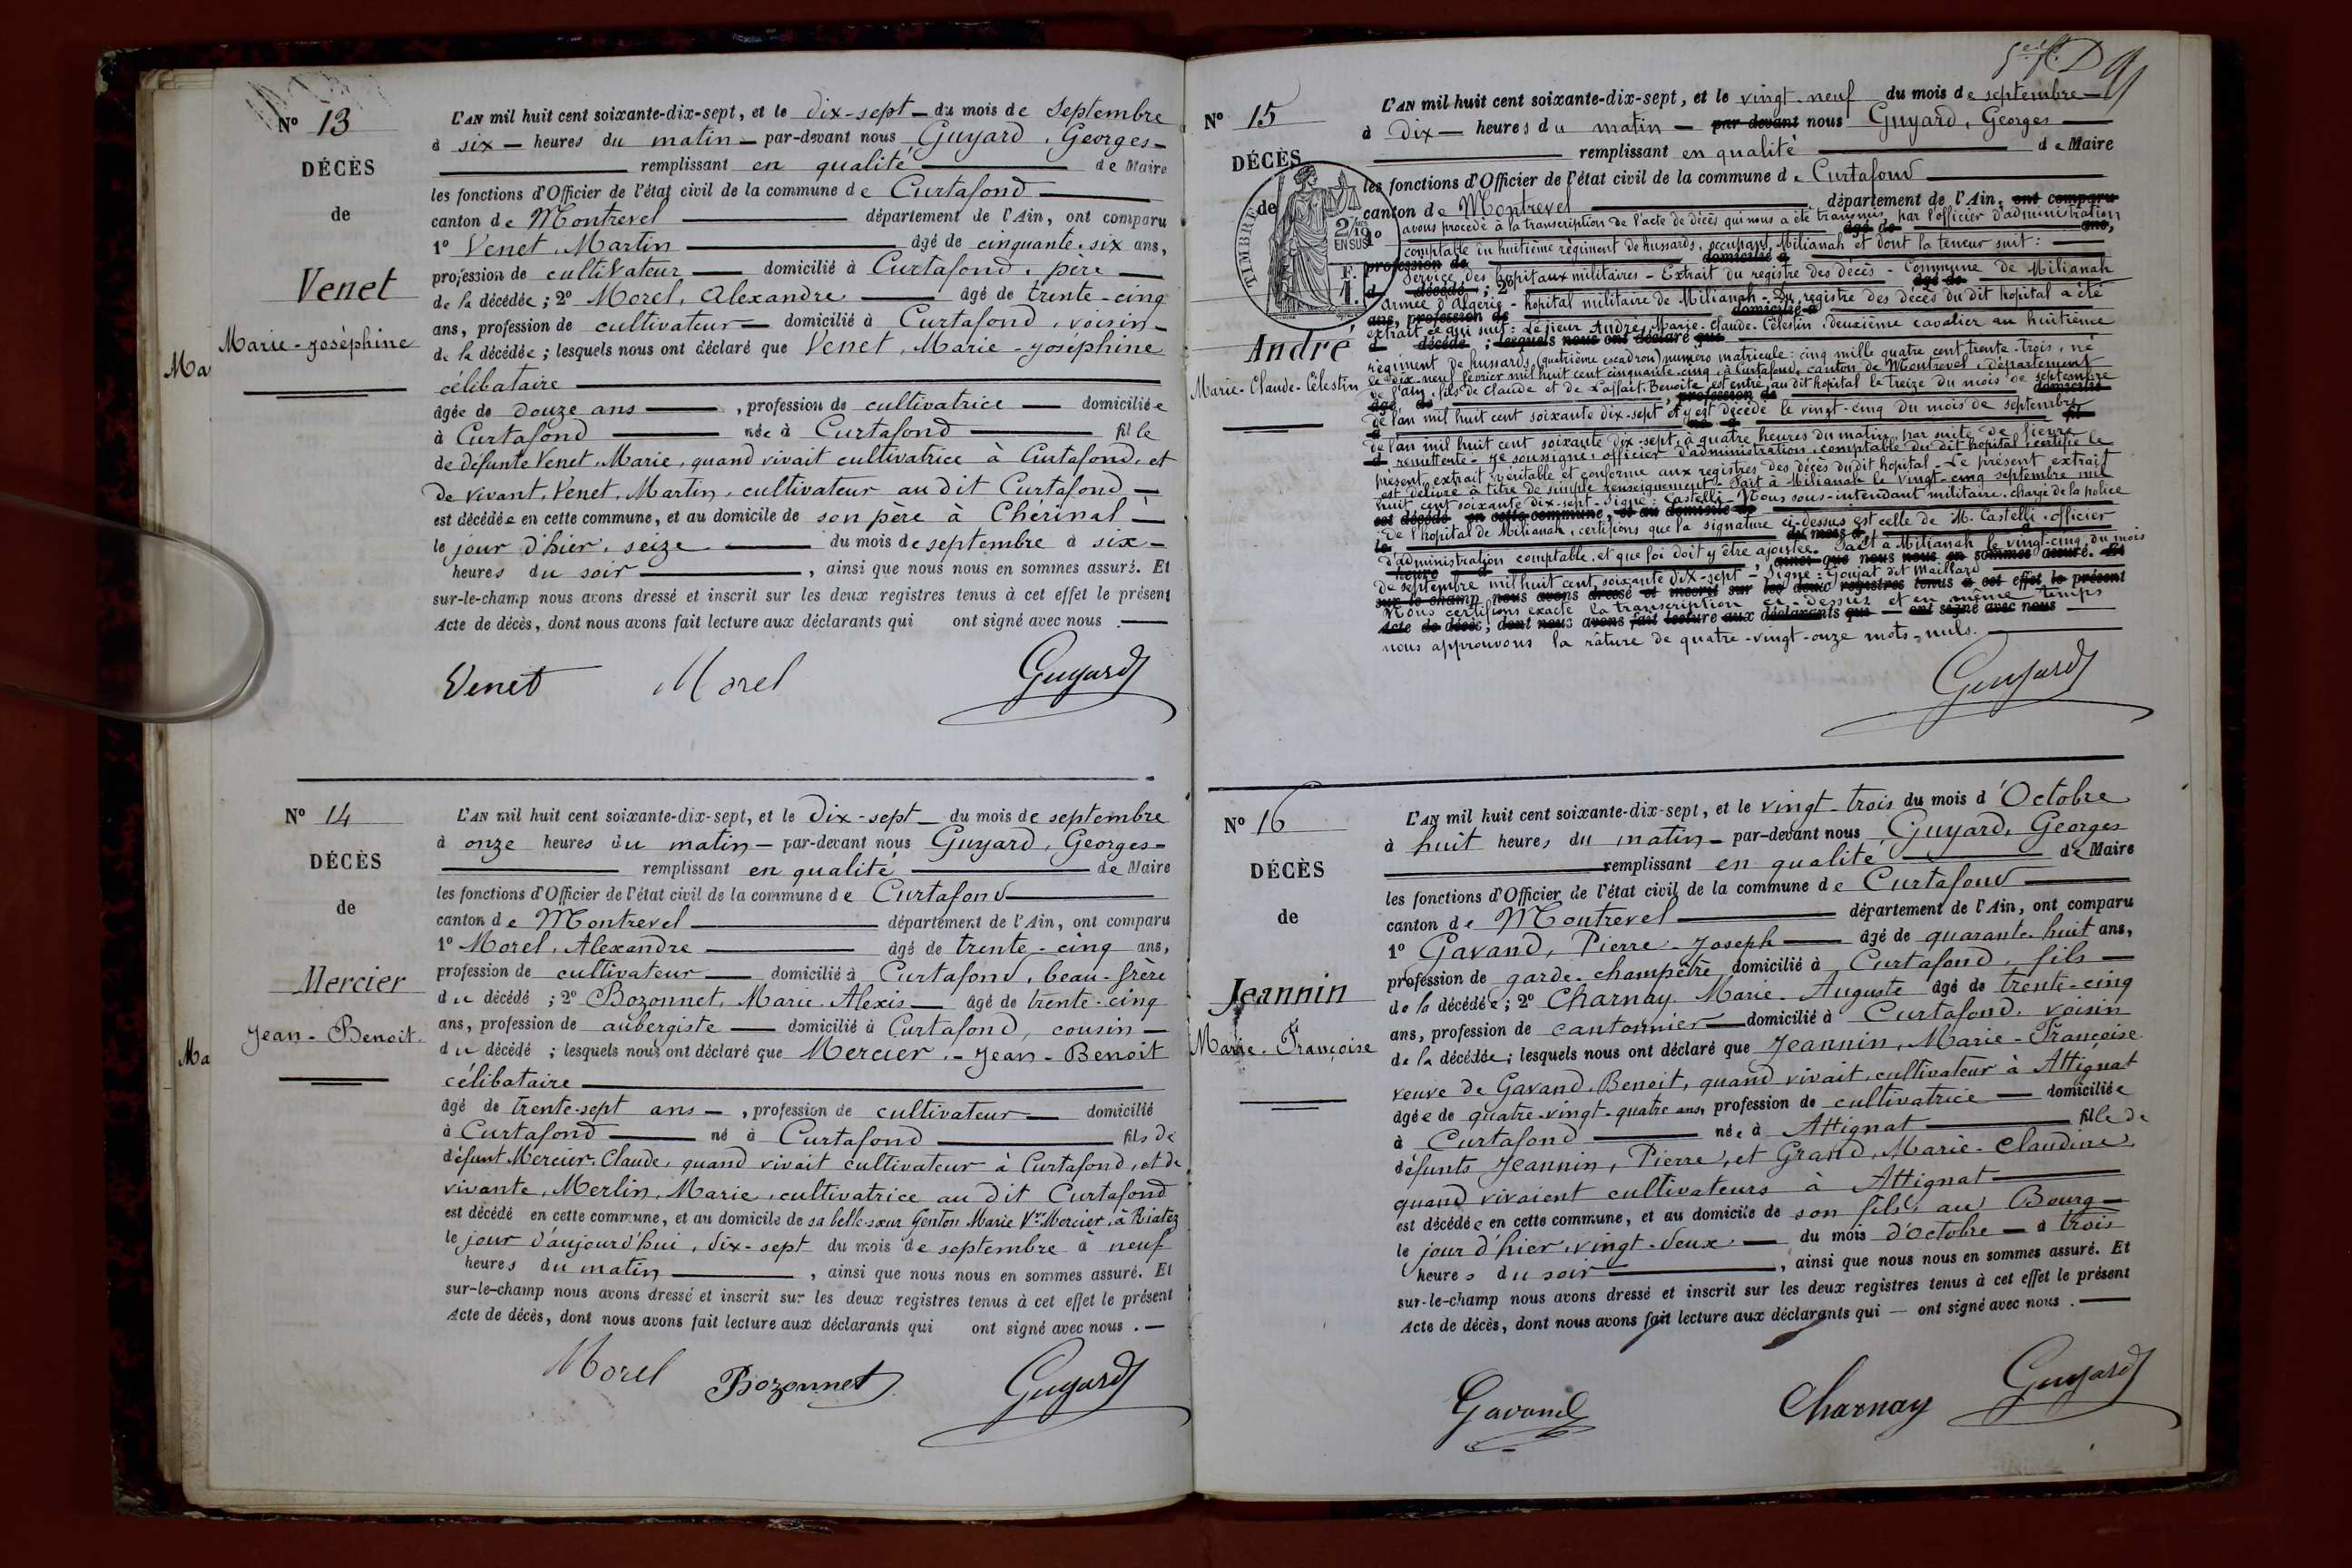 Nº 13
DÉCÈS
de
Venet
Marie-Joséphine
Ma
L'AN mil huit cent soixante-dix-sept, et le dix-sept du mois de Septembre
à six heures du matin par-devant nous Guyard, Georges
remplissant en qualité de Maire
les fonctions d'Officier de l'état civil de la commune de Curtafond
canton de Montrevel département de l'Ain, ont comparu
1º Venet, Martin âgé de cinquante-six ans,
profession de cultivateur domicilié à Curtafond, père
de la décédée ; 2º Morel, Alexandre âgé de trente-cinq
ans, profession de cultivateur domicilié à Curtafond, voisin
de la décédée ; lesquels nous ont déclaré que Venet, Marie-Joséphine
célibataire
âgée de douze ans , profession de cultivatrice domiciliée
à Curtafond née à Curtafond fille
de défunte Venet, Marie, quand vivait cultivatrice à Curtafond, et
de vivant, Venet, Martin, cultivateur au dit Curtafond
est décédée en cette commune, et au domicile de son père à Chérinal
le jour d'hier, seize du mois de septembre à six
heures du soir , ainsi que nous nous en sommes assuré. Et
sur-le-champ nous avons dressé et inscrit sur les deux registres tenus à cet effet le présent
Acte de décès, dont nous avons fait lecture aux déclarants qui ont signé avec nous .
Venet Morel Guyard
Nº 14
DÉCÈS
de
Mercier
Jean-Benoit.
Ma
L'AN mil huit cent soixante-dix-sept, et le Dix-sept du mois de septembre
à onze heures du matin par-devant nous Guyard, Georges
remplissant en qualité de Maire
les fonctions d'Officier de l'état civil de la commune de Curtafond
canton de Montrevel département de l'Ain, ont comparu
1º Morel, Alexandre âgé de trente-cinq ans,
profession de cultivateur domicilié à Curtafond, beau-frère
du décédé ; 2º Bozonnet, Marie-Alexis âgé de trente-cinq
ans, profession de aubergiste domicilié à Curtafond, cousin
du décédé ; lesquels nous ont déclaré que Mercier, Jean-Benoit
célibataire
âgé de trente-sept ans , profession de cultivateur domicilié
à Curtafond né à Curtafond fils de
défunt Mercier, Claude, quand vivait cultivateur à Curtafond, et de
vivante, Merlin, Marie, cultivatrice au dit Curtafond
est décédé en cette commune, et au domicile de sa belle-sœur Genton Marie Vve Mercier, à Riatez
le jour d'aujourd'hui, dix-sept du mois de septembre à neuf
heures du matin , ainsi que nous nous en sommes assuré. Et
sur-le-champ nous avons dressé et inscrit sur les deux registres tenus à cet effet le présent
Acte de décès, dont nous avons fait lecture aux déclarants qui ont signé avec nous .
Morel Bozonnet Guyard
Nº 15
DÉCÈS
de
TIMBRE
2/10
EN SUS
André
Marie-Claude-Célestin
L'AN mil huit cent soixante-dix-sept, et le vingt-neuf du mois de septembre
à Dix heures du matin par-devant nous Guyard, Georges
remplissant en qualité de Maire
les fonctions d'Officier de l'état civil de la commune de Curtafond
canton de Montrevel département de l'Ain, ont comparu
avons procédé à la transcription de l'acte de décès qui nous a été transmis par l'officier d'administration
comptable du huitième régiment de hussards, occupant Milianah et dont la teneur suit :
Service des hopitaux militaires - Extrait du registre des décès - Commune de Milianah
Armée d'Algérie - hopital militaire de Milianah - Du registre des décès du dit hopital a été
extrait ce qui suit : Le sieur André, Marie-Claude-Célestin, deuxième cavalier au huitième
régiment de hussards, (quatrième escadron) numéro matricule : cinq mille quatre cent trente-trois, né
le dix-neuf février mil huit cent cinquante-cinq, à Curtafond, canton de Montrevel, département
de l'Ain, fils de Claude et de Laffait, Benoite, est entré au dit hopital le treize du mois de septembre
de l'an mil huit cent soixante dix-sept et y est décédé le vingt-cinq du mois de septembre
de l'an mil huit cent soixante dix-sept, à quatre heures du matin, par suite de fièvre
remittente - Je soussigné, officier d'administration, comptable du dit hopital, certifie le
présent extrait véritable et conforme aux registres des décès du dit hopital - Le présent extrait
est délivré à titre de simple renseignement - Fait à Milianah le vingt-cinq septembre mil
huit cent soixante dix-sept - Signé : Castelli - Nous sous-intendant militaire, chargé de la police
de l'hopital de Milianah, certifions que la signature ci-dessus est celle de M. Castelli, officier
d'administration comptable, et que foi doit y être ajoutée. Fait à Milianah le vingt-cinq du mois
de septembre mil huit cent soixante dix-sept - Signé : Goujat dit Maillard
Nous certifions exacte la transcription ci-dessus et en même temps
nous approuvons la râture de quatre-vingt-onze mots nuls.
Guyard
Nº 16
DÉCÈS
de
Jeannin
Marie-Françoise
L'AN mil huit cent soixante-dix-sept, et le vingt-trois du mois d'Octobre
à huit heures du matin par-devant nous Guyard, Georges
remplissant en qualité de Maire
les fonctions d'Officier de l'état civil de la commune de Curtafond
canton de Montrevel département de l'Ain, ont comparu
1º Gavand, Pierre-Joseph âgé de quarante-huit ans,
profession de garde-champêtre domicilié à Curtafond, fils
de la décédée ; 2º Charnay, Marie-Auguste âgé de trente-cinq
ans, profession de cantonnier domicilié à Curtafond, voisin
de la décédée ; lesquels nous ont déclaré que Jeannin, Marie-Françoise
veuve de Gavand, Benoit, quand vivait, cultivateur à Attignat
âgée de quatre-vingt-quatre ans, profession de cultivatrice domiciliée
à Curtafond née à Attignat fille de
défunts Jeannin, Pierre, et Grand, Marie-Claudine,
quand vivaient cultivateurs à Attignat
est décédée en cette commune, et au domicile de son fils, au Bourg
le jour d'hier, vingt-deux du mois d'Octobre à trois
heures du soir , ainsi que nous nous en sommes assuré. Et
sur-le-champ nous avons dressé et inscrit sur les deux registres tenus à cet effet le présent
Acte de décès, dont nous avons fait lecture aux déclarants qui — ont signé avec nous .
Gavand Charnay Guyard